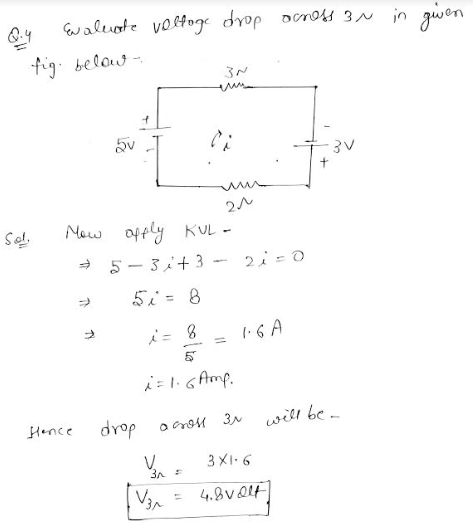 Q.4 Evaluate voltage drop across 3Ω in given
fig. below -
3Ω
+
5V
-
i
-
3V
+
2Ω
Sol. Now apply KVL -
⇒ 5 - 3i + 3 - 2i = 0
⇒ 5i = 8
⇒ i = 8/5 = 1.6 A
i = 1.6 Amp.
Hence drop across 3Ω will be -
V3Ω = 3×1.6
V3Ω = 4.8 volt